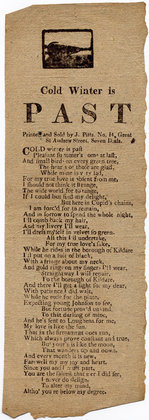 Cold Winter is
PAST
Printed and Sold by J. Pitts, No. 14, Great
St Andrew Street, Seven Dials.
COLD winter is past
Pleasant summer's come at last,
And small birds on every green tree,
The hearts of those are glad,
While mine is very sad,
For my true love is absent from me.
I should not think it strange,
The wide world for to range,
If I could but find my delight,
But here in Cupid's chains,
I am forc'd for to remain,
And in sorrow to spend the whole night,
I'll cloath back my hair,
And my livery I'll wear,
I'll dress myself in velvet so green,
All this I'd undergo
For my true love's sake,
While he rides in the borough of Kildare
I'd put on a suit of black,
With a fringe about my neck,
And gold ring on my finger I'll wear,
Straightways I will repair,
To the borough of Kildare,
And there I'll get a sight of my dear,
With patience I did wait,
While he rode for the plate,
Expecting young Johnson to see,
But fortune prov'd unkind,
To that darling of mine,
And he's gone to
My love is like the sun,
That in the firmament does run,
Which always prove constant and true,
But your's is like the moon
That wanders up and down,
And every month it is new,
Farewell my joy and heart,
Since you and I must part,
You are the fairest that e'er I did see,
I never do design
To alter my mind,
Altho' you're below my degree.